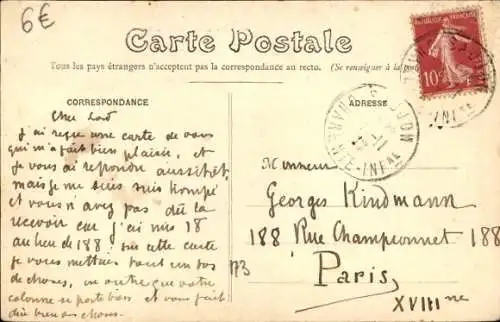 6€
Carte Postale
Tous les pays étrangers n'acceptent pas la correspondance au recto. (Se renseigner à la poste
RÉPUBLIQUE FRANÇAISE
10
CORRESPONDANCE
ADRESSE
INFRE
j'ai reçue une carte de vous
qui m'a fait bien plaisir, et
je vous ai repondu aussitôt,
mais je me suis trompé
et vous n'avez pas dû la
recevoir car j'ai mis 18
au lieu de 188 sur cette carte
je vous mettais tout un tas
de choses, en outre que votre
colonne se porte bien et vous fait
dire bien des choses.
Monsieur
Georges Kindmann
188 Rue Championnet 188
Paris
XVIIIme